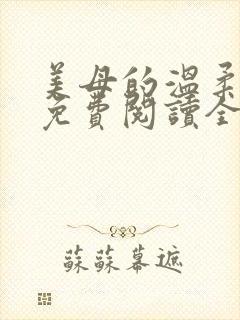 美母的温柔
免費閱讀全
蘇蘇幕遮